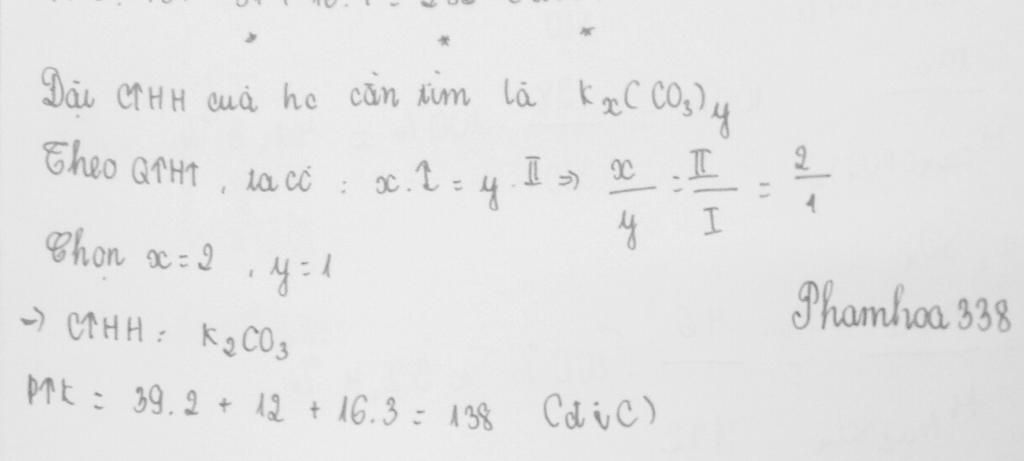 * * *
Đặt CTHH của hc cần tìm là Kₓ(CO₃)y
Theo QTHT, ta có : x.I = y.II => x/y = II/I = 2/1
Chọn x=2 , y=1
-> CTHH: K₂CO₃
Phamhoa338
PTK = 39.2 + 12 + 16.3 = 138 (đvC)